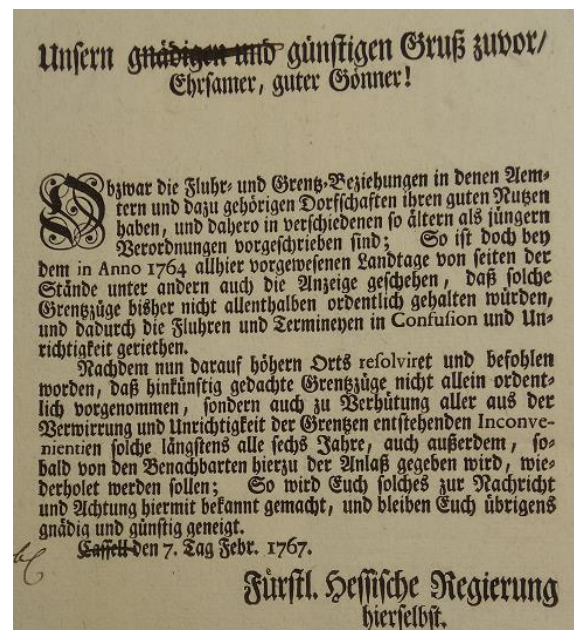 Unsern gnädigen und günstigen Gruß zuvor/
Ehrsamer, guter Gönner!
Obzwar die Fluhr- und Grentz-Beziehungen in denen Aem-
tern und dazu gehörigen Dorfschaften ihren guten Nutzen
haben, und dahero in verschiedenen so ältern als jüngern
Verordnungen vorgeschrieben sind; So ist doch bey
dem in Anno 1764 allhier vorgewesenen Landtage von seiten der
Stände unter andern auch die Anzeige geschehen, daß solche
Grentzzüge bisher nicht allenthalben ordentlich gehalten würden,
und dadurch die Fluhren und Termineyen in Confusion und Un-
richtigkeit geriethen.
Nachdem nun darauf höhern Orts resolviret und befohlen
worden, daß hinkünftig gedachte Grentzzüge nicht allein ordent-
lich vorgenommen, sondern auch zu Verhütung aller aus der
Verwirrung und Unrichtigkeit der Grentzen entstehenden Inconve-
nientien solche längstens alle sechs Jahre, auch außerdem, so-
bald von den Benachbarten hierzu der Anlaß gegeben wird, wie-
derholet werden sollen; So wird Euch solches zur Nachricht
und Achtung hiermit bekannt gemacht, und bleiben Euch übrigens
gnädig und günstig geneigt.
Cassell den 7. Tag Febr. 1767.
Fürstl. Hessische Regierung
hierselbst.